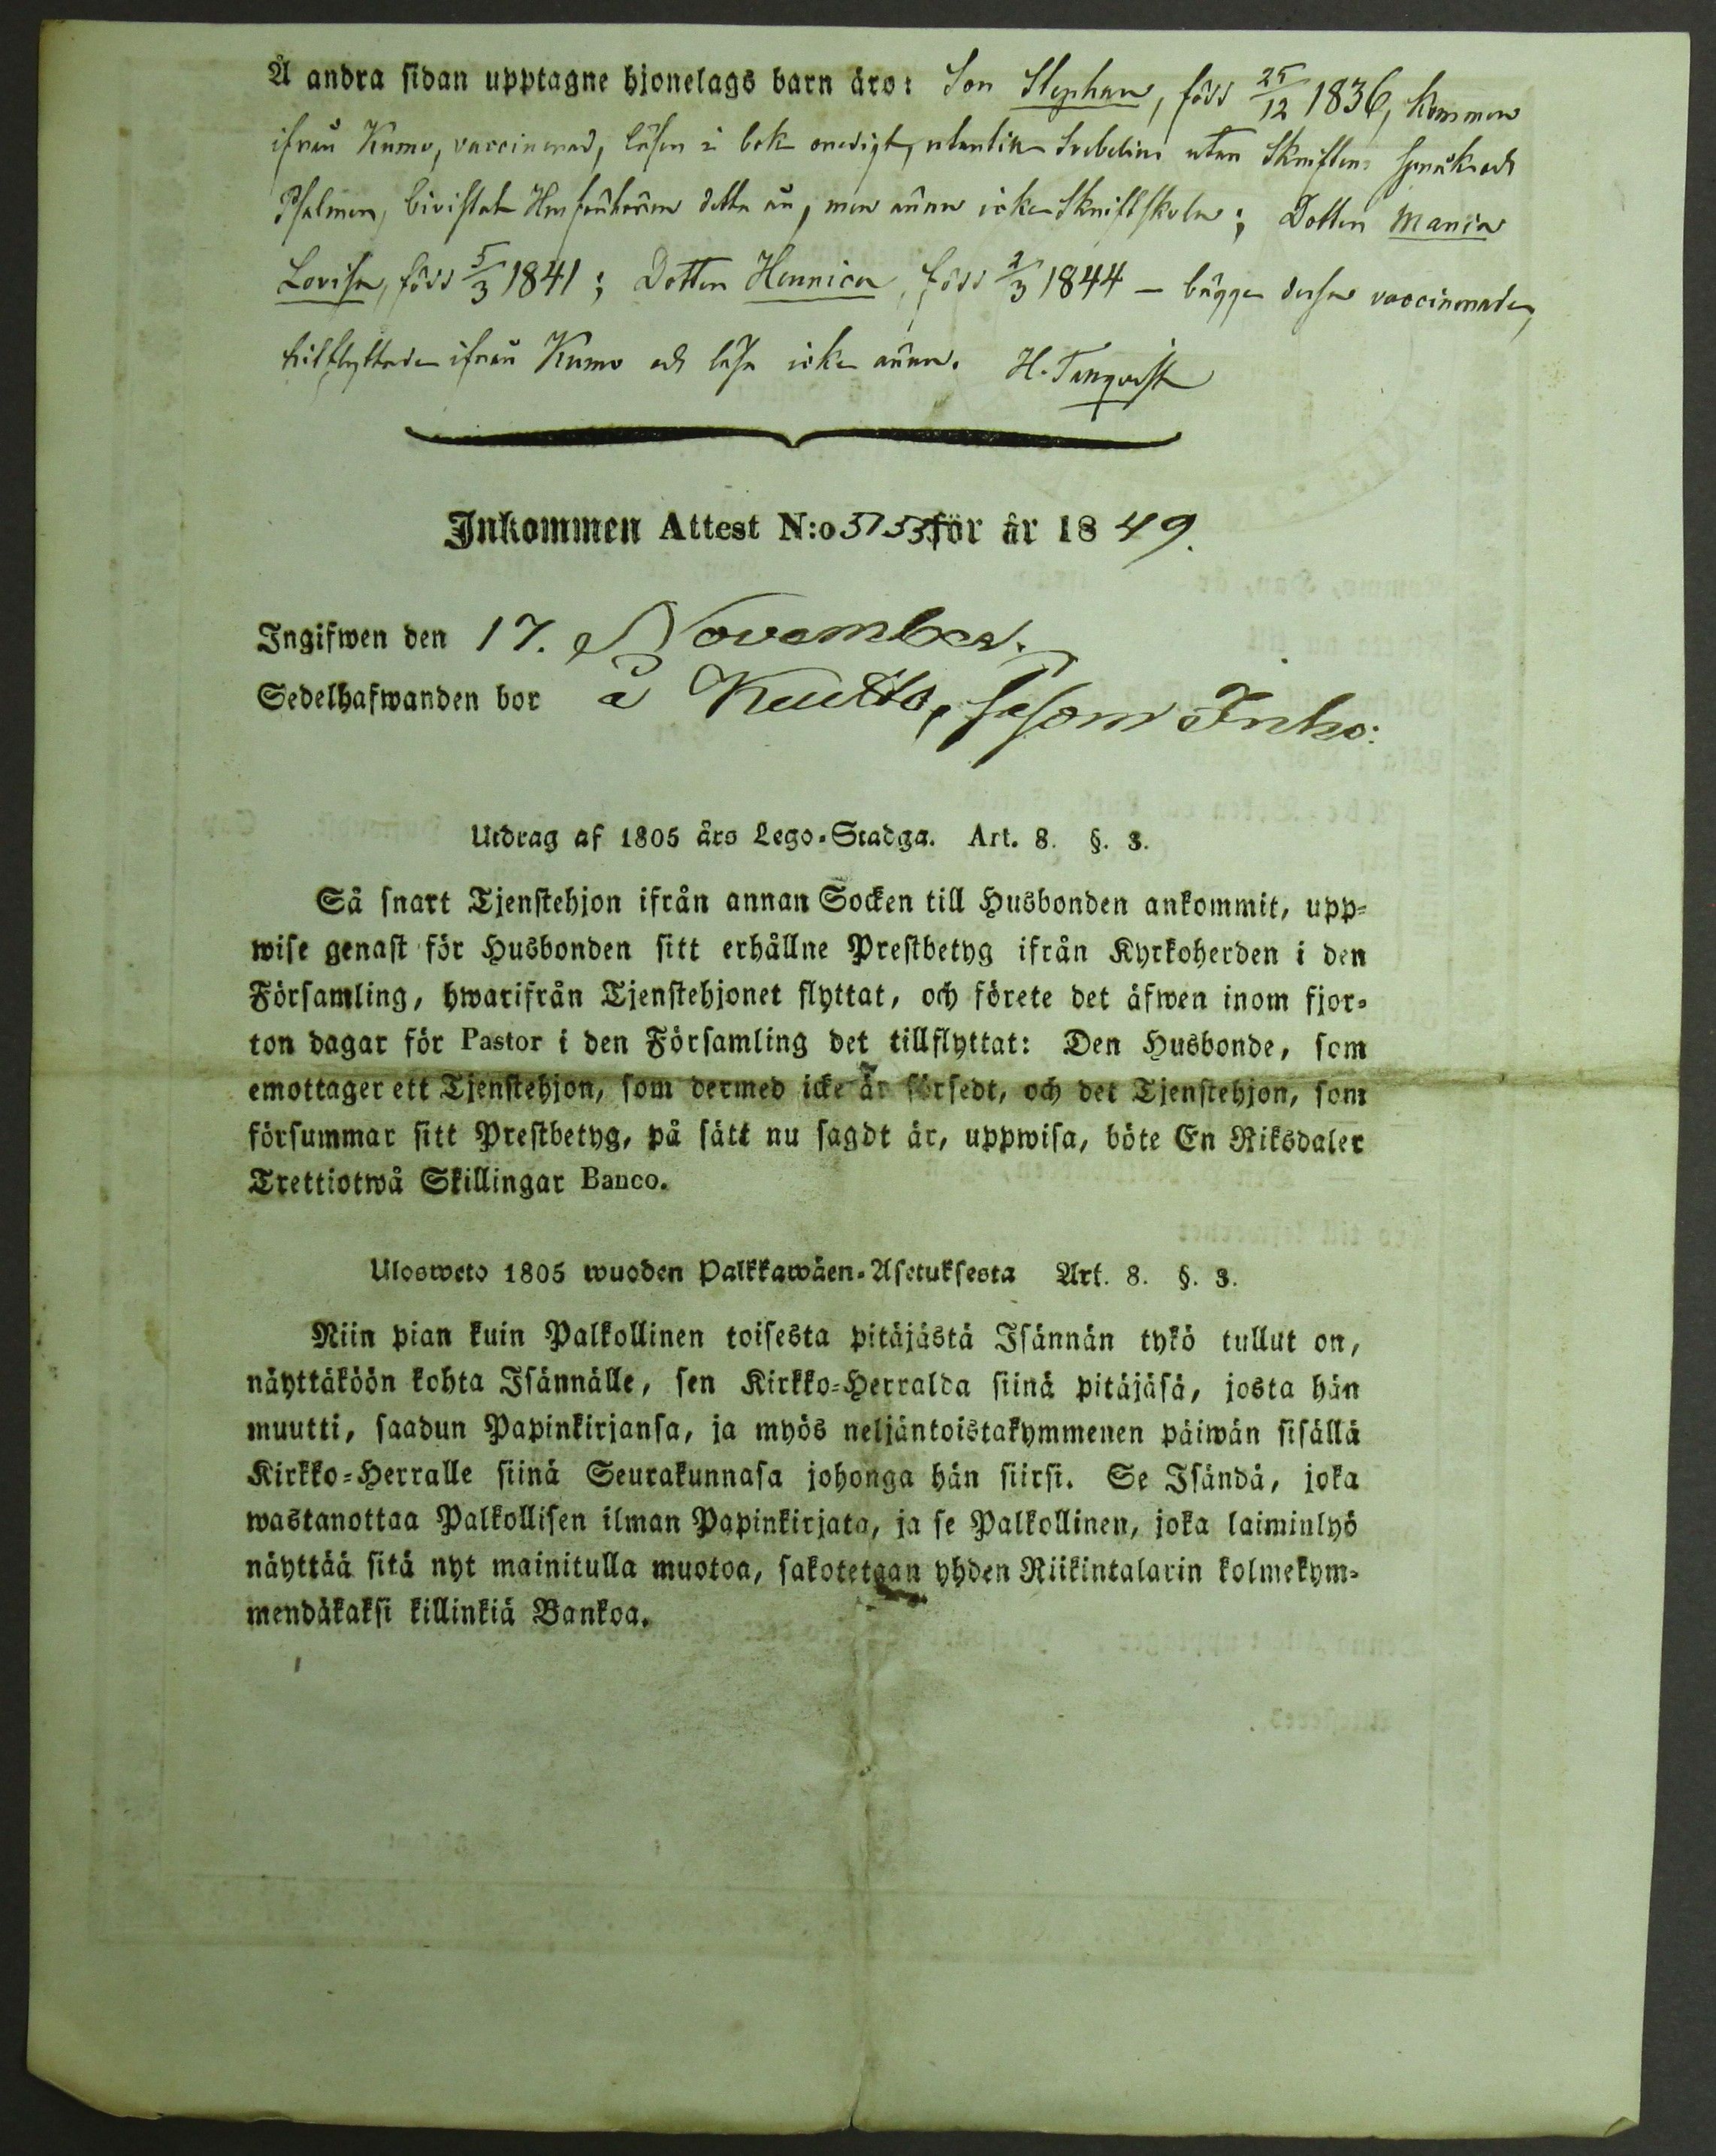 Å andra sidan upptagne hjonelags barn äro: Son Stephan, född 25/12 1836, kommen
ifrån Kumo, vaccinerad, läser i bok onödigt, utantill Svebelius utan Skriftens språk och
Psalmen, bivistat Husförhören detta år, men ännu icke Skriftskolan; Dottren Maria
Lovisa, född 5/3 1841; Dottren Henrica, född 2/3 1844 – bägge dessa vaccinerade,
tillflyttade ifrån Kumo och läsa icke ännu. H. Tanqvist
Inkommen Attest N:o 5753 för år 1849.
Ingifwen den 17. November.
Sedelhafwanden bor å såsom Inhs:
Utdrag af 1805 års Lego-Stadga. Art. 8. §. 3.
Så snart Tjenstehjon ifrån annan Socken till Husbonden ankommit, upp-
wise genast för Husbonden sitt erhållne Prestbetyg ifrån Kyrkoherden i den
Församling, hwarifrån Tjenstehjonet flyttat, och förete det äfwen inom fjor-
ton dagar för Pastor i den Församling det tillflyttat: Den Husbonde, som
emottager ett Tjenstehjon, som dermed icke är försedt, och det Tjenstehjon, som
försummar sitt Prestbetyg, på sätt nu sagdt är, uppwisa, böte En Riksdaler
Trettiotwå Skillingar Banco.
Ulosweto 1805 wuoden Palkkawäen-Asetuksesta Art. 8. §. 3.
Niin pian kuin Palkollinen toisesta pitäjästä Isännän tykö tullut on,
näyttäköön kohta Isännälle, sen Kirkko-Herralda siinä pitäjäsä, josta hän
muutti, saadun Papinkirjansa, ja myös neljäntoistakymmenen päiwän sisällä
Kirkko-Herralle siinä Seurakunnasa johonga hän siirsi. Se Isändä, joka
wastanottaa Palkollisen ilman Papinkirjata, ja se Palkollinen, joka laiminlyö
näyttää sitä nyt mainitulla muotoa, sakotetaan yhden Riikintalarin kolmekym-
mendäkaksi killinkiä Bankoa.